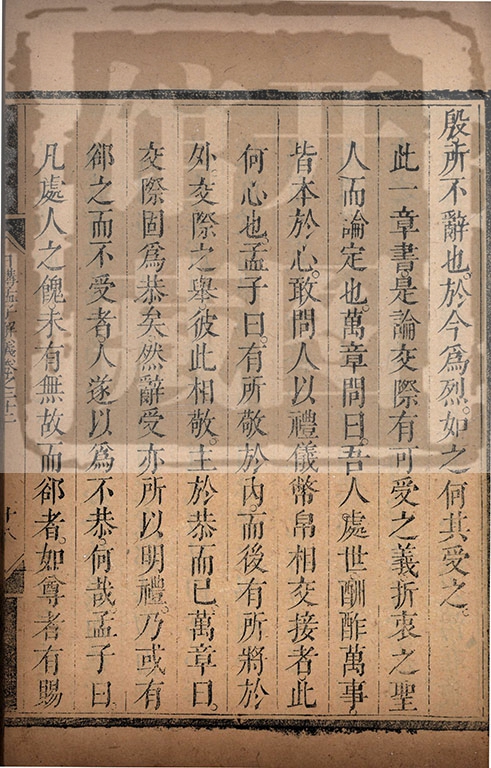 殷所不辭也。於今爲烈。如之何其受之。
此一章書。是論交際有可受之義折衷之聖
人而論定也。萬章問曰。吾人處世酬酢萬事
皆本於心。敢問人以禮儀幣帛相交接者此
何心也孟子曰。有所敬於內。而後有所將於
外。交際之舉彼此相敬。主於恭而已萬章曰。
交際固爲恭矣然辭受亦所以明禮。乃或有
郤之而不受者。人遂以爲不恭。何哉孟子曰
凡處人之餽未有無故而郤者。如尊者有賜
日講
解義卷之二十一
十八